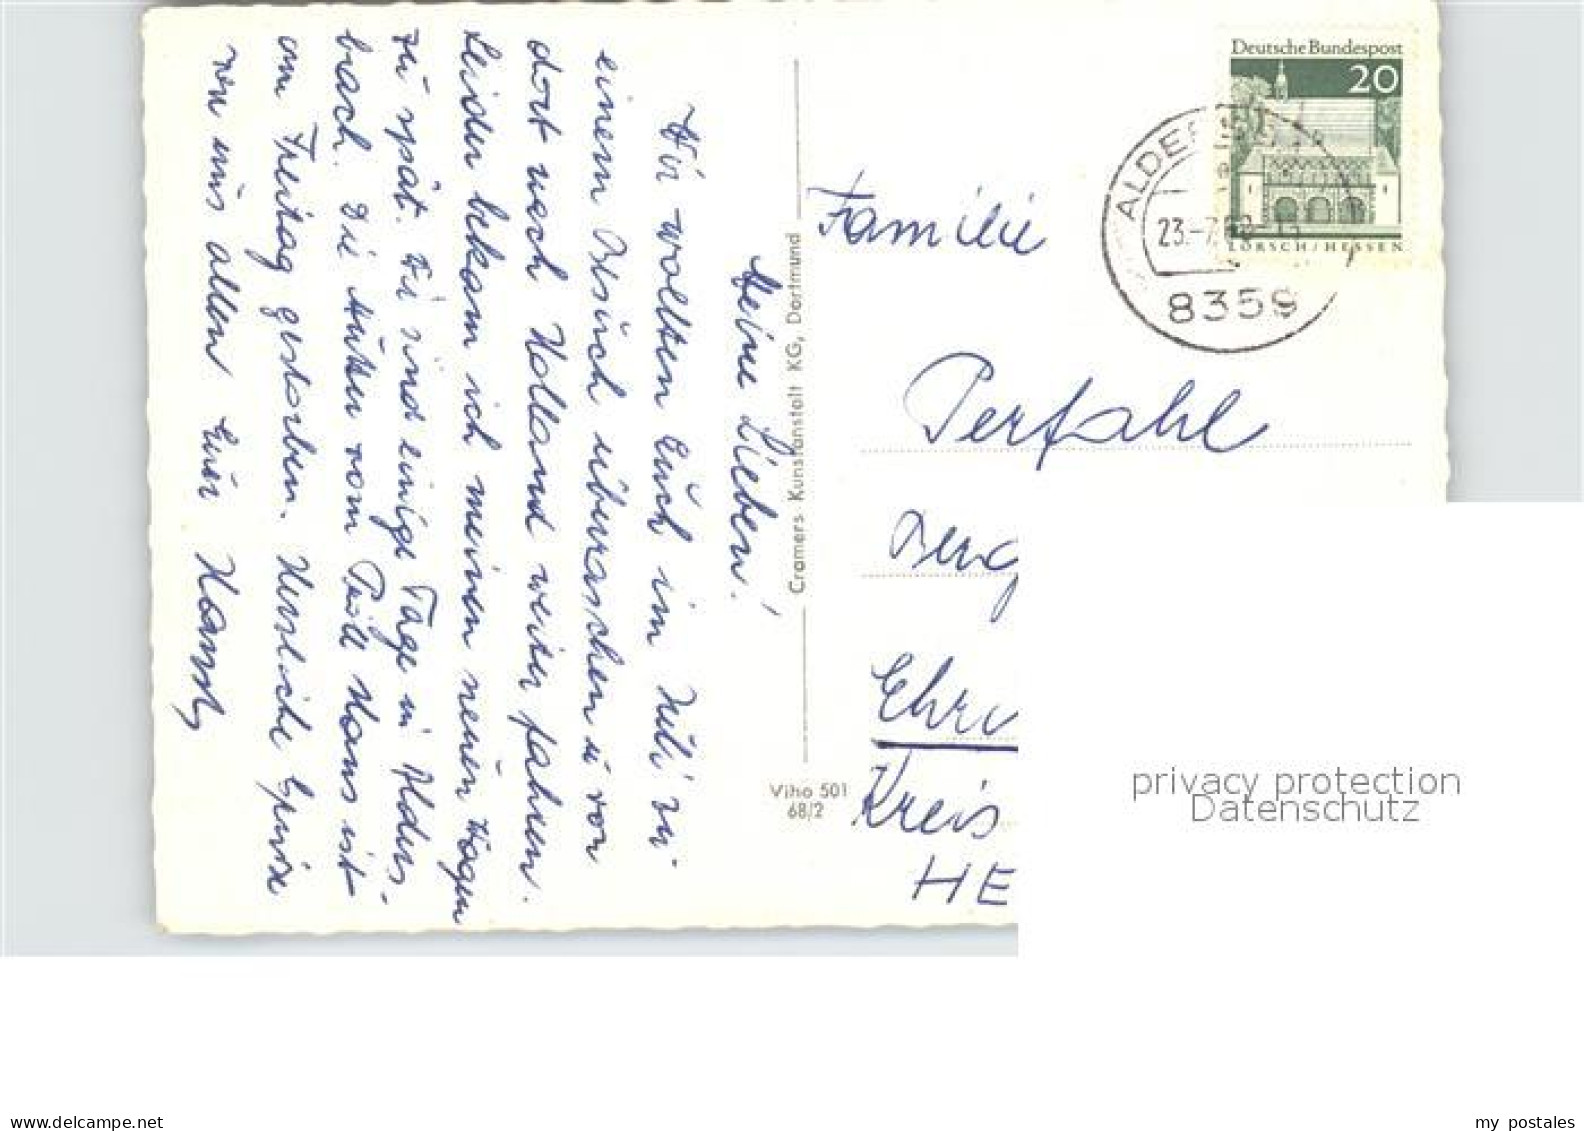 Meine Lieben!
Wir wollten Euch im Juli zu
einem Besuch überraschen u von
dort nach Holland weiter fahren.
Leider bekam ich meinen neuen Wagen
zu spät. Wir sind einige Tage in Alders-
bach. Die Mutter vom Hans ist
am Freitag gestorben. Herzliche Grüße
von uns allen Euer
Cramers Kunstanstalt KG, Dortmund
Viho 501
68/2
Deutsche Bundespost
20
LORSCH/HESSEN
ALDE
23.-7.
8359
Familie
Perfahl
Ehr
Kreis
HE
privacy protection
Datenschutz
www.delcampe.net
my postales